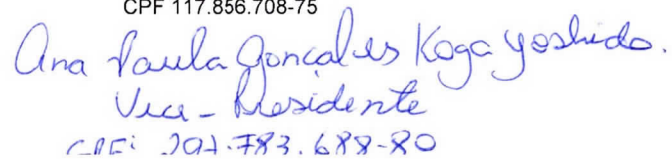 CPF 117.856.708-75
Ana Paula Gonçalves Koga Yoshido.
Vice-Presidente
CPF: 297.783.688-80